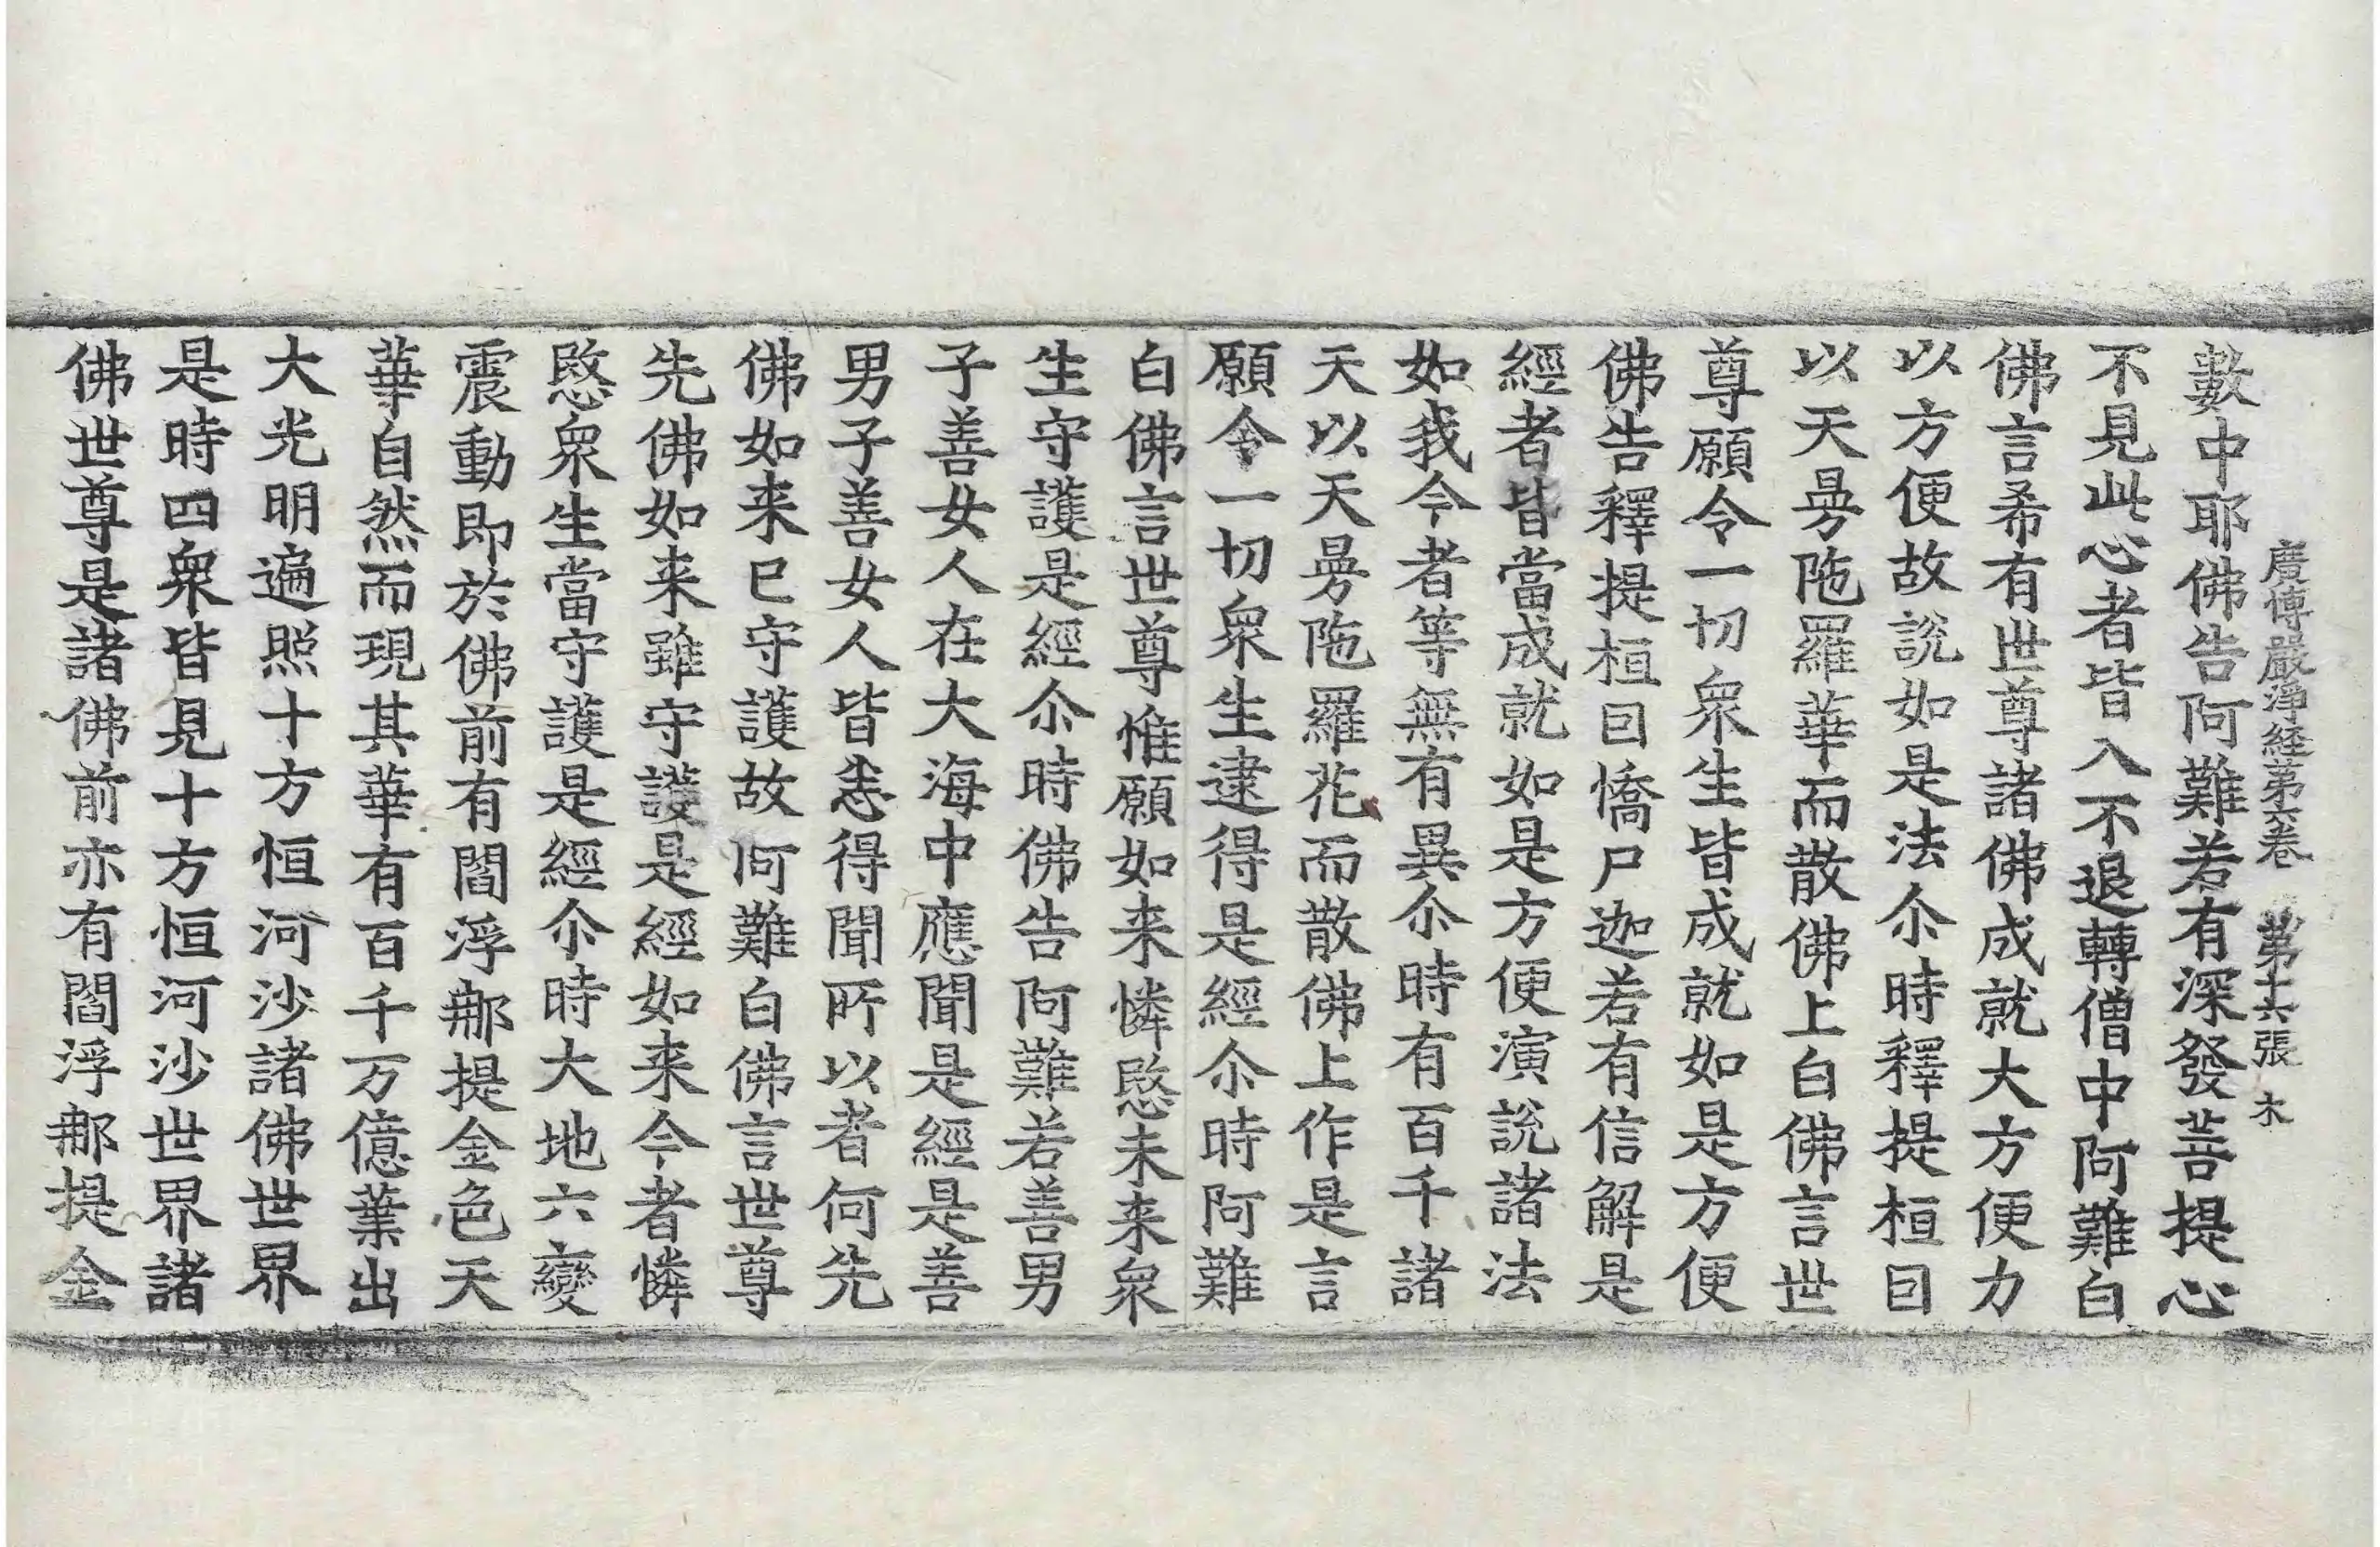 廣博嚴淨経第六卷　第十六張　木
數中耶佛告阿難若有深發菩提心
不見此心者皆入不退轉僧中阿難白
佛言希有世尊諸佛成就大方便力
以方便故説如是法尒時釋提桓因
以天曼陁羅華而散佛上白佛言世
尊願令一切衆生皆成就如是方便
佛告釋提桓因憍尸迦若有信解是
經者皆當成就如是方便演説諸法
如我今者等無有異尒時有百千諸
天以天曼陁羅花而散佛上作是言
願令一切衆生逮得是經尒時阿難
白佛言世尊惟願如来憐愍未来衆
生守護是經尒時佛告阿難若善男
子善女人在大海中應聞是經是善
男子善女人皆悉得聞所以者何先
佛如来已守護故阿難白佛言世尊
先佛如来雖守護是經如来今者憐
愍衆生當守護是經尒時大地六變
震動即於佛前有閻浮郍提金色天
華自然而現其華有百千万億葉出
大光明遍照十方恒河沙諸佛世界
是時四衆皆見十方恒河沙世界諸
佛世尊是諸佛前亦有閻浮郍提金